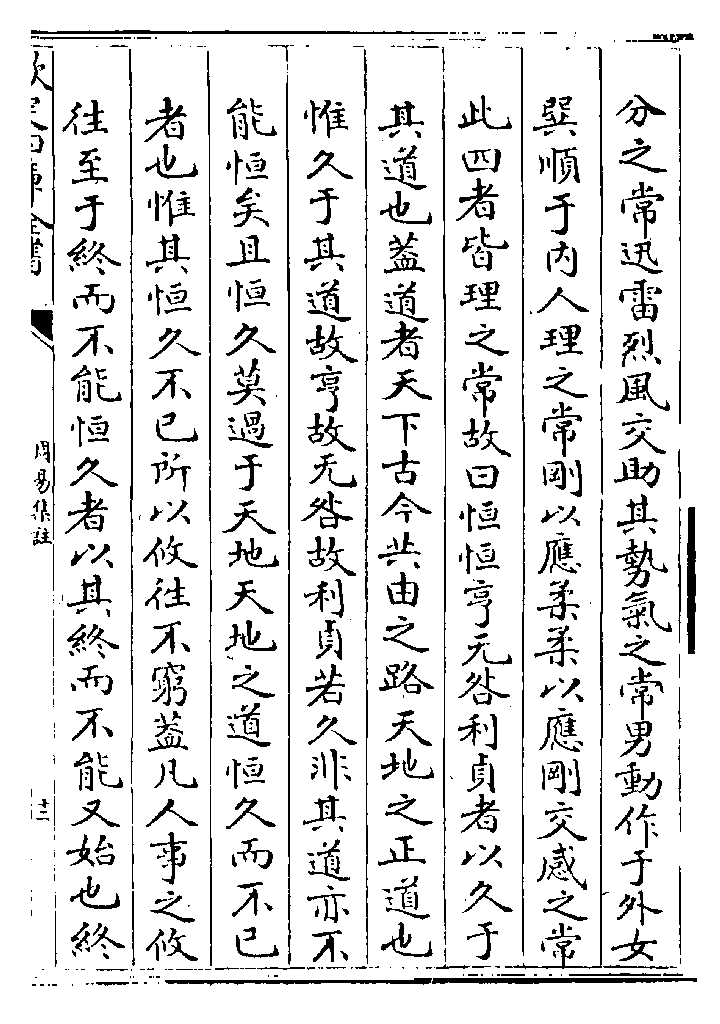 分之常迅雷烈風交助其勢氣之常男動作于外女
巽順于内人理之常剛以應柔柔以應剛交感之常
此四者皆理之常故曰恒恒亨无咎利貞者以久于
其道也葢道者天下古今共由之路天地之正道也
惟久于其道故亨故无咎故利貞若久非其道亦不
能恒矣且恒久莫過于天地天地之道恒久而不已
者也惟其恒久不已所以攸往不窮葢凡人事之攸
徃至于終而不能恒久者以其終而不能又始也終
欽定四庫全書
周易集註
十二